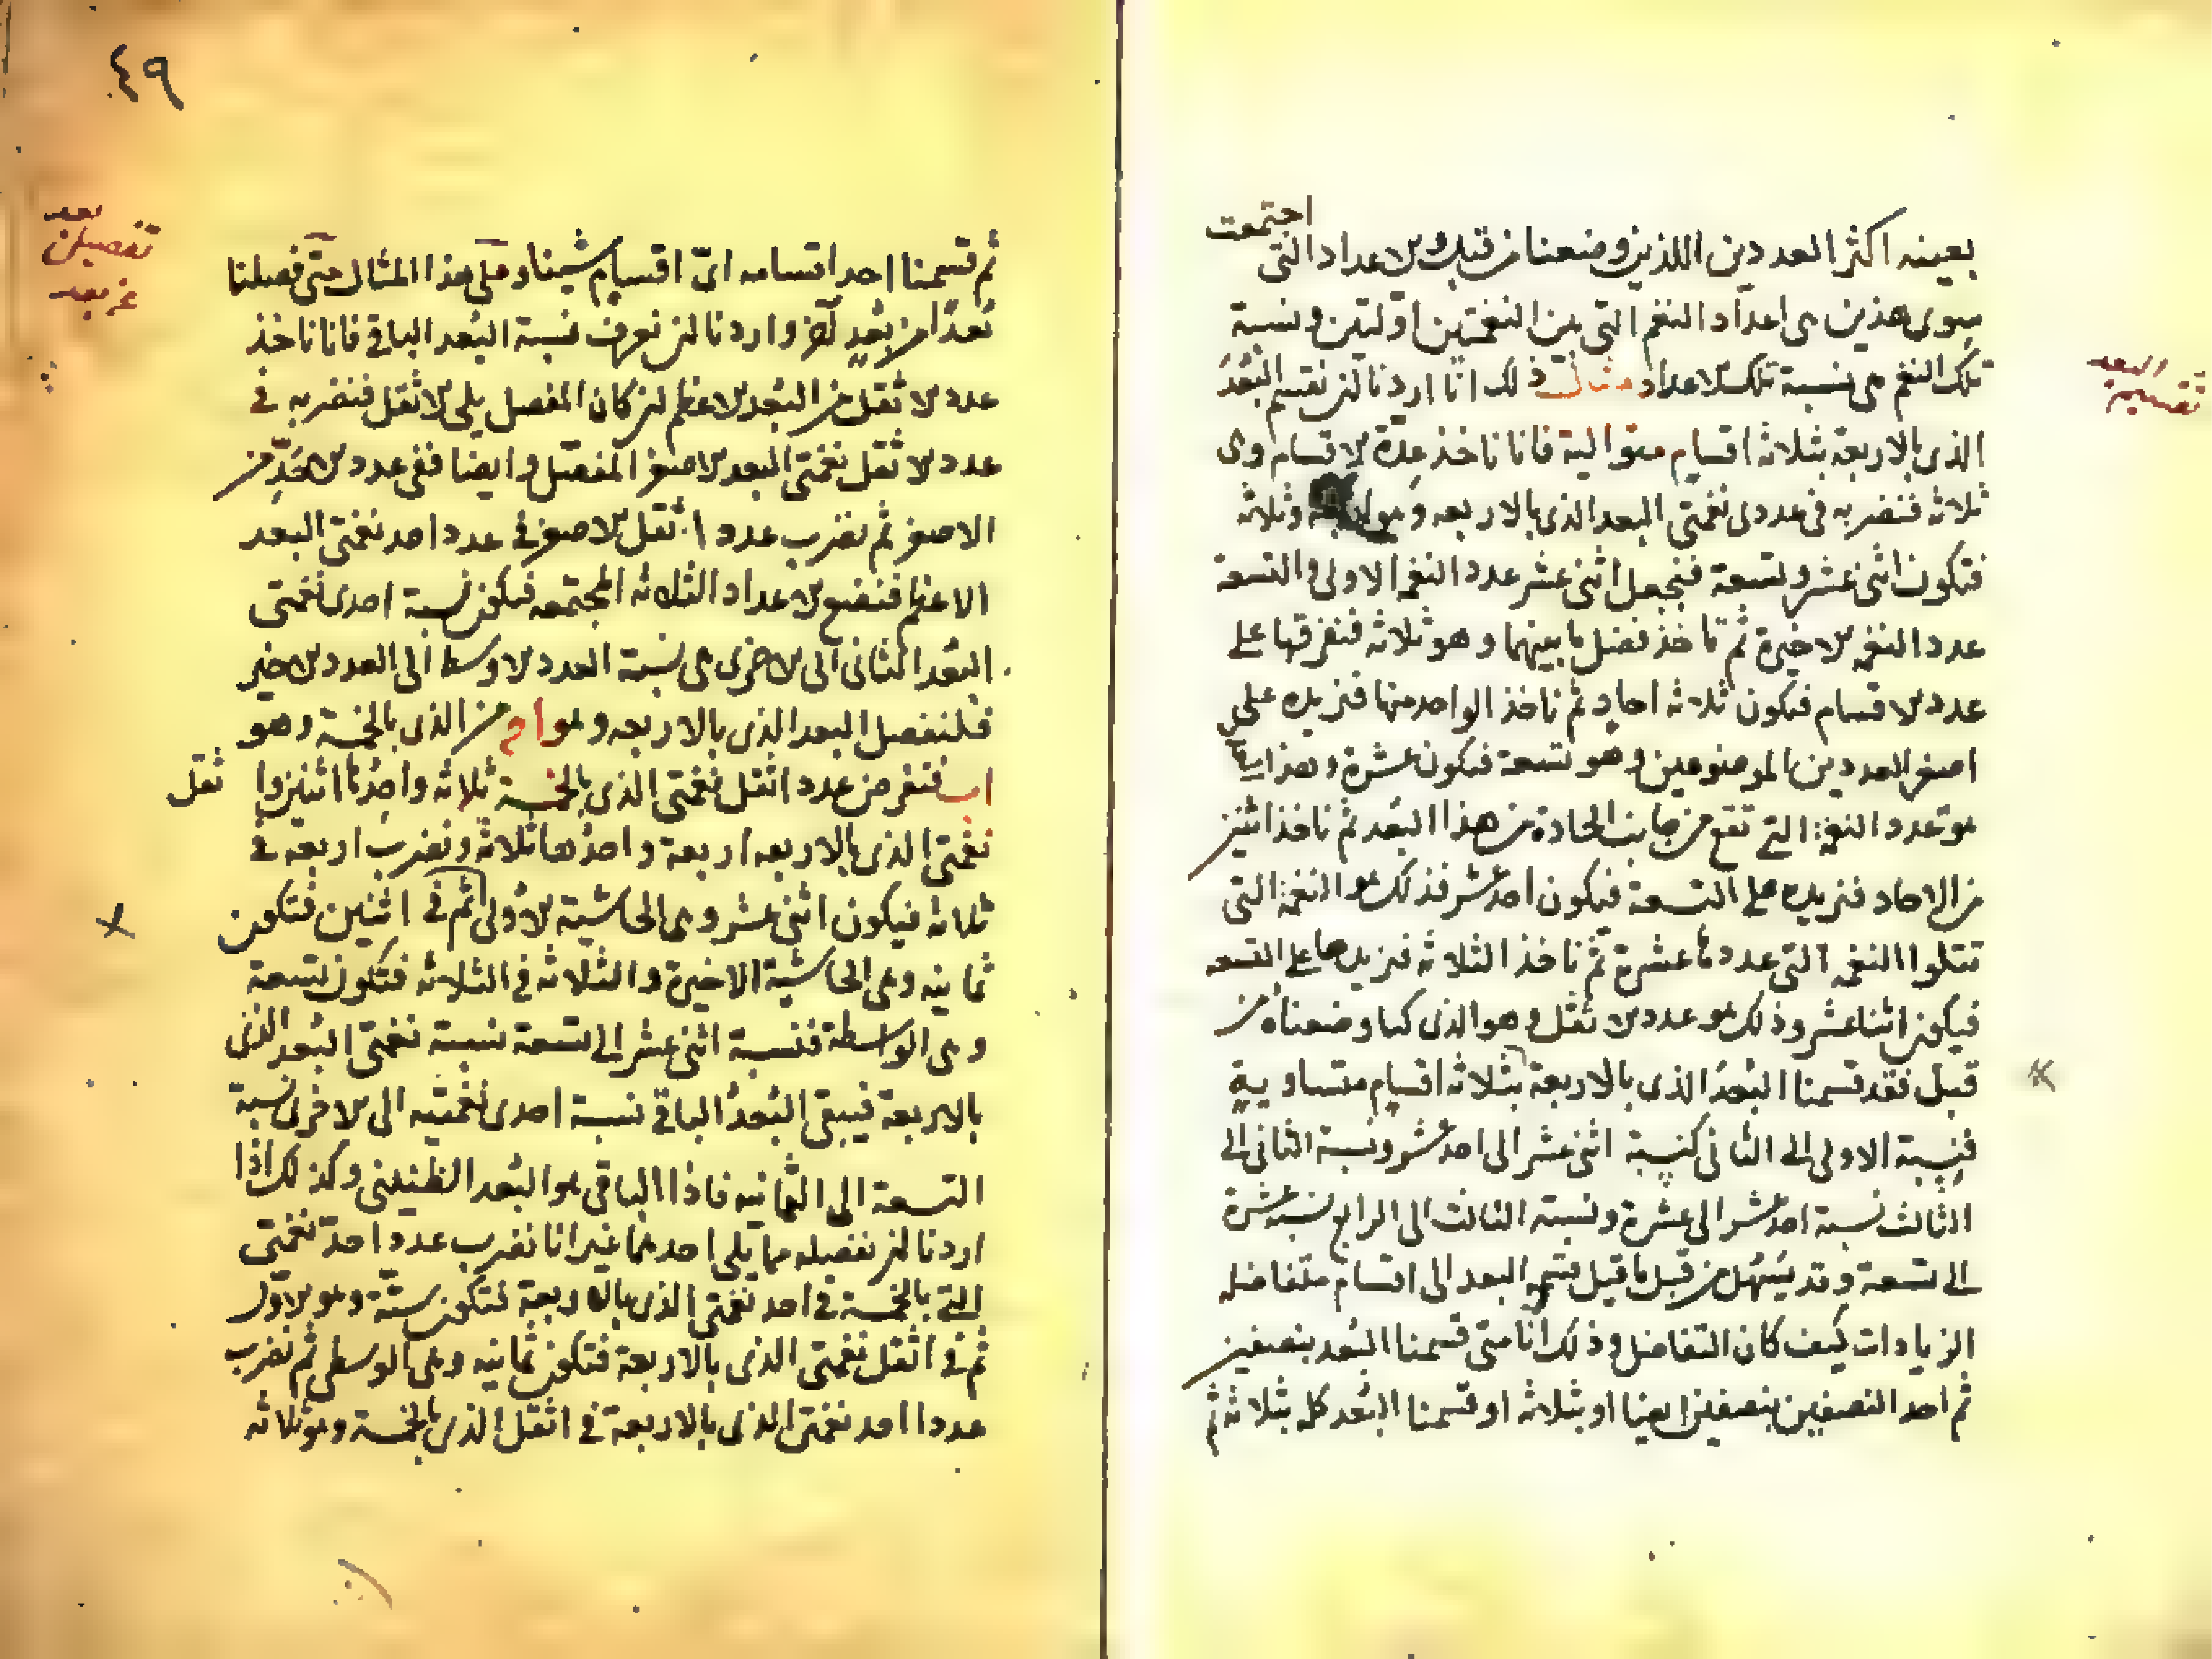 اجتمعت
بعينه اكثر العددين اللذين وضعنا من قبل والاعداد التى
سوى هذين هى اعداد النغم التى بين النغمتين اولتين ونسبة
تلك النغم هى نسبة تلك الاعداد مثال ذلك انّا اردنا ان نقسم البُعد
تقسيم البعد
الذى بالاربعة بثلاثة اقسام متوالية فانا ناخذ عدة الاقسام وهى
ثلاثة فنضربه فى عددى نغمتى البعد الذى بالاربعه وهو اربعة وثلاثة
فتكون اثنى عشر وتسعة فنجعل اثنى عشر عدد النغمه الاولى والتسعة
عدد النغمه الاخيرة ثم ناخذ فضل ما بينهما وهو ثلاثه فنفرقها على
عدد الاقسام فيكون ثلاثه احاد ثم ناخذ الواحد منها فنزيده على
اصغر العددين الموضوعين وهو تسعة فيكون عشرة وهذا
هو عدد النغمة التى تقع من جانب الحادة من هذا البُعد ثم ناخذ اثنين
من الاحاد فنزيده على التسعة فيكون احد عشر فذلك هو النغمة التى
تتلوا النغمه التى عددها عشرة ثم ناخذ الثلاثه فنزيدها على التسعه
فيكون اثنا عشر وذلك هو عدد الاثقل وهو الذى كنا وضعناه من
قبل فقد قسمنا البُعد الذى بالاربعة بثلاثه اقسام متساوية
فنسبة الاولى الى الثانى كنسبة اثنى عشر الى احد عشر ونسبة الثانى الى
الثالث نسبة احد عشر الى عشرة ونسبة الثالث الى الرابع نسبة عشرة
الى تسعة وقد يسهل من قبل ما قيل قسمة البعد الى اقسام متفاضله
الزيادات كيف كان التفاضل وذلك انا متى قسمنا البُعد بنصفين
ثم احد النصفين بنصفين ايضا او بثلاثه او قسمنا البُعد كله بثلاثة ثم
٤٩
ثم قسمنا احد اقسامه اىّ اقسام شينا وعلى هذا المثال متى فصلنا
تفصيل بعد
عن بعد
بُعدًا من بُعدٍ آخر واردنا ان نعرف نسبة البُعد الباقى فانا ناخذ
عدد الاثقل من البُعد الاعظم ان كان المفصل يلى الاثقل فنضربه فى
عدد الاثقل نغمتى البعد الاصغر المنفصل وايضا ففى عدد الاحدّ من
الاصغر ثم نضرب عدد اثقل الاصغر فى عدد احد نغمتى البعد
الاعظم فنضع الاعداد الثلاثه المجتمعه فيكون نسبة احدى نغمتى
البُعد الثانى الى الاخرى هى نسبة العدد الاوسط الى العدد الاخير
فلنفصل البعد الذى بالاربعه وهو ا م من الذى بالخمسة وهو
ا ب فنفرض عدد اثقل نغمتى الذى بالخمسة ثلاثه واحدّها اثنين وا ثقل
نغمتى الذى بالاربعه اربعة واحدّها ثلاثة ونضرب اربعه فى
ثلاثه فيكون اثنى عشر وهى الحاشية الاولى ثم فى اثنين فتكون
ثمانيه وهى الحاشية الاخيرة والثلاثه فى الثلاثه فتكون تسعة
وهى الواسطة فنسبة اثنى عشر الى تسعة نسبة نغمتى البُعد الذى
بالاربعة فيبقى البُعد الباقى نسبة احدى نغمتيه الى الاخرى نسبة
التسعة الى الثمانيه فاذا الباقى هو البُعد الطنينى وكذلك اذا
اردنا ان نفصله مما يلى احدهما غير انا نضرب عدد احدّ نغمتى
التى بالخمسة فى احد نغمتى الذى بالاربعة فتكون ستّة وهو الاوّل
ثم فى اثقل نغمتى الذى بالاربعة فتكون ثمانيه وهى الوسطى ثم نضرب
عدد احد نغمتى الذى بالاربعة فى اثقل الذى بالخمسة وهو ثلاثه